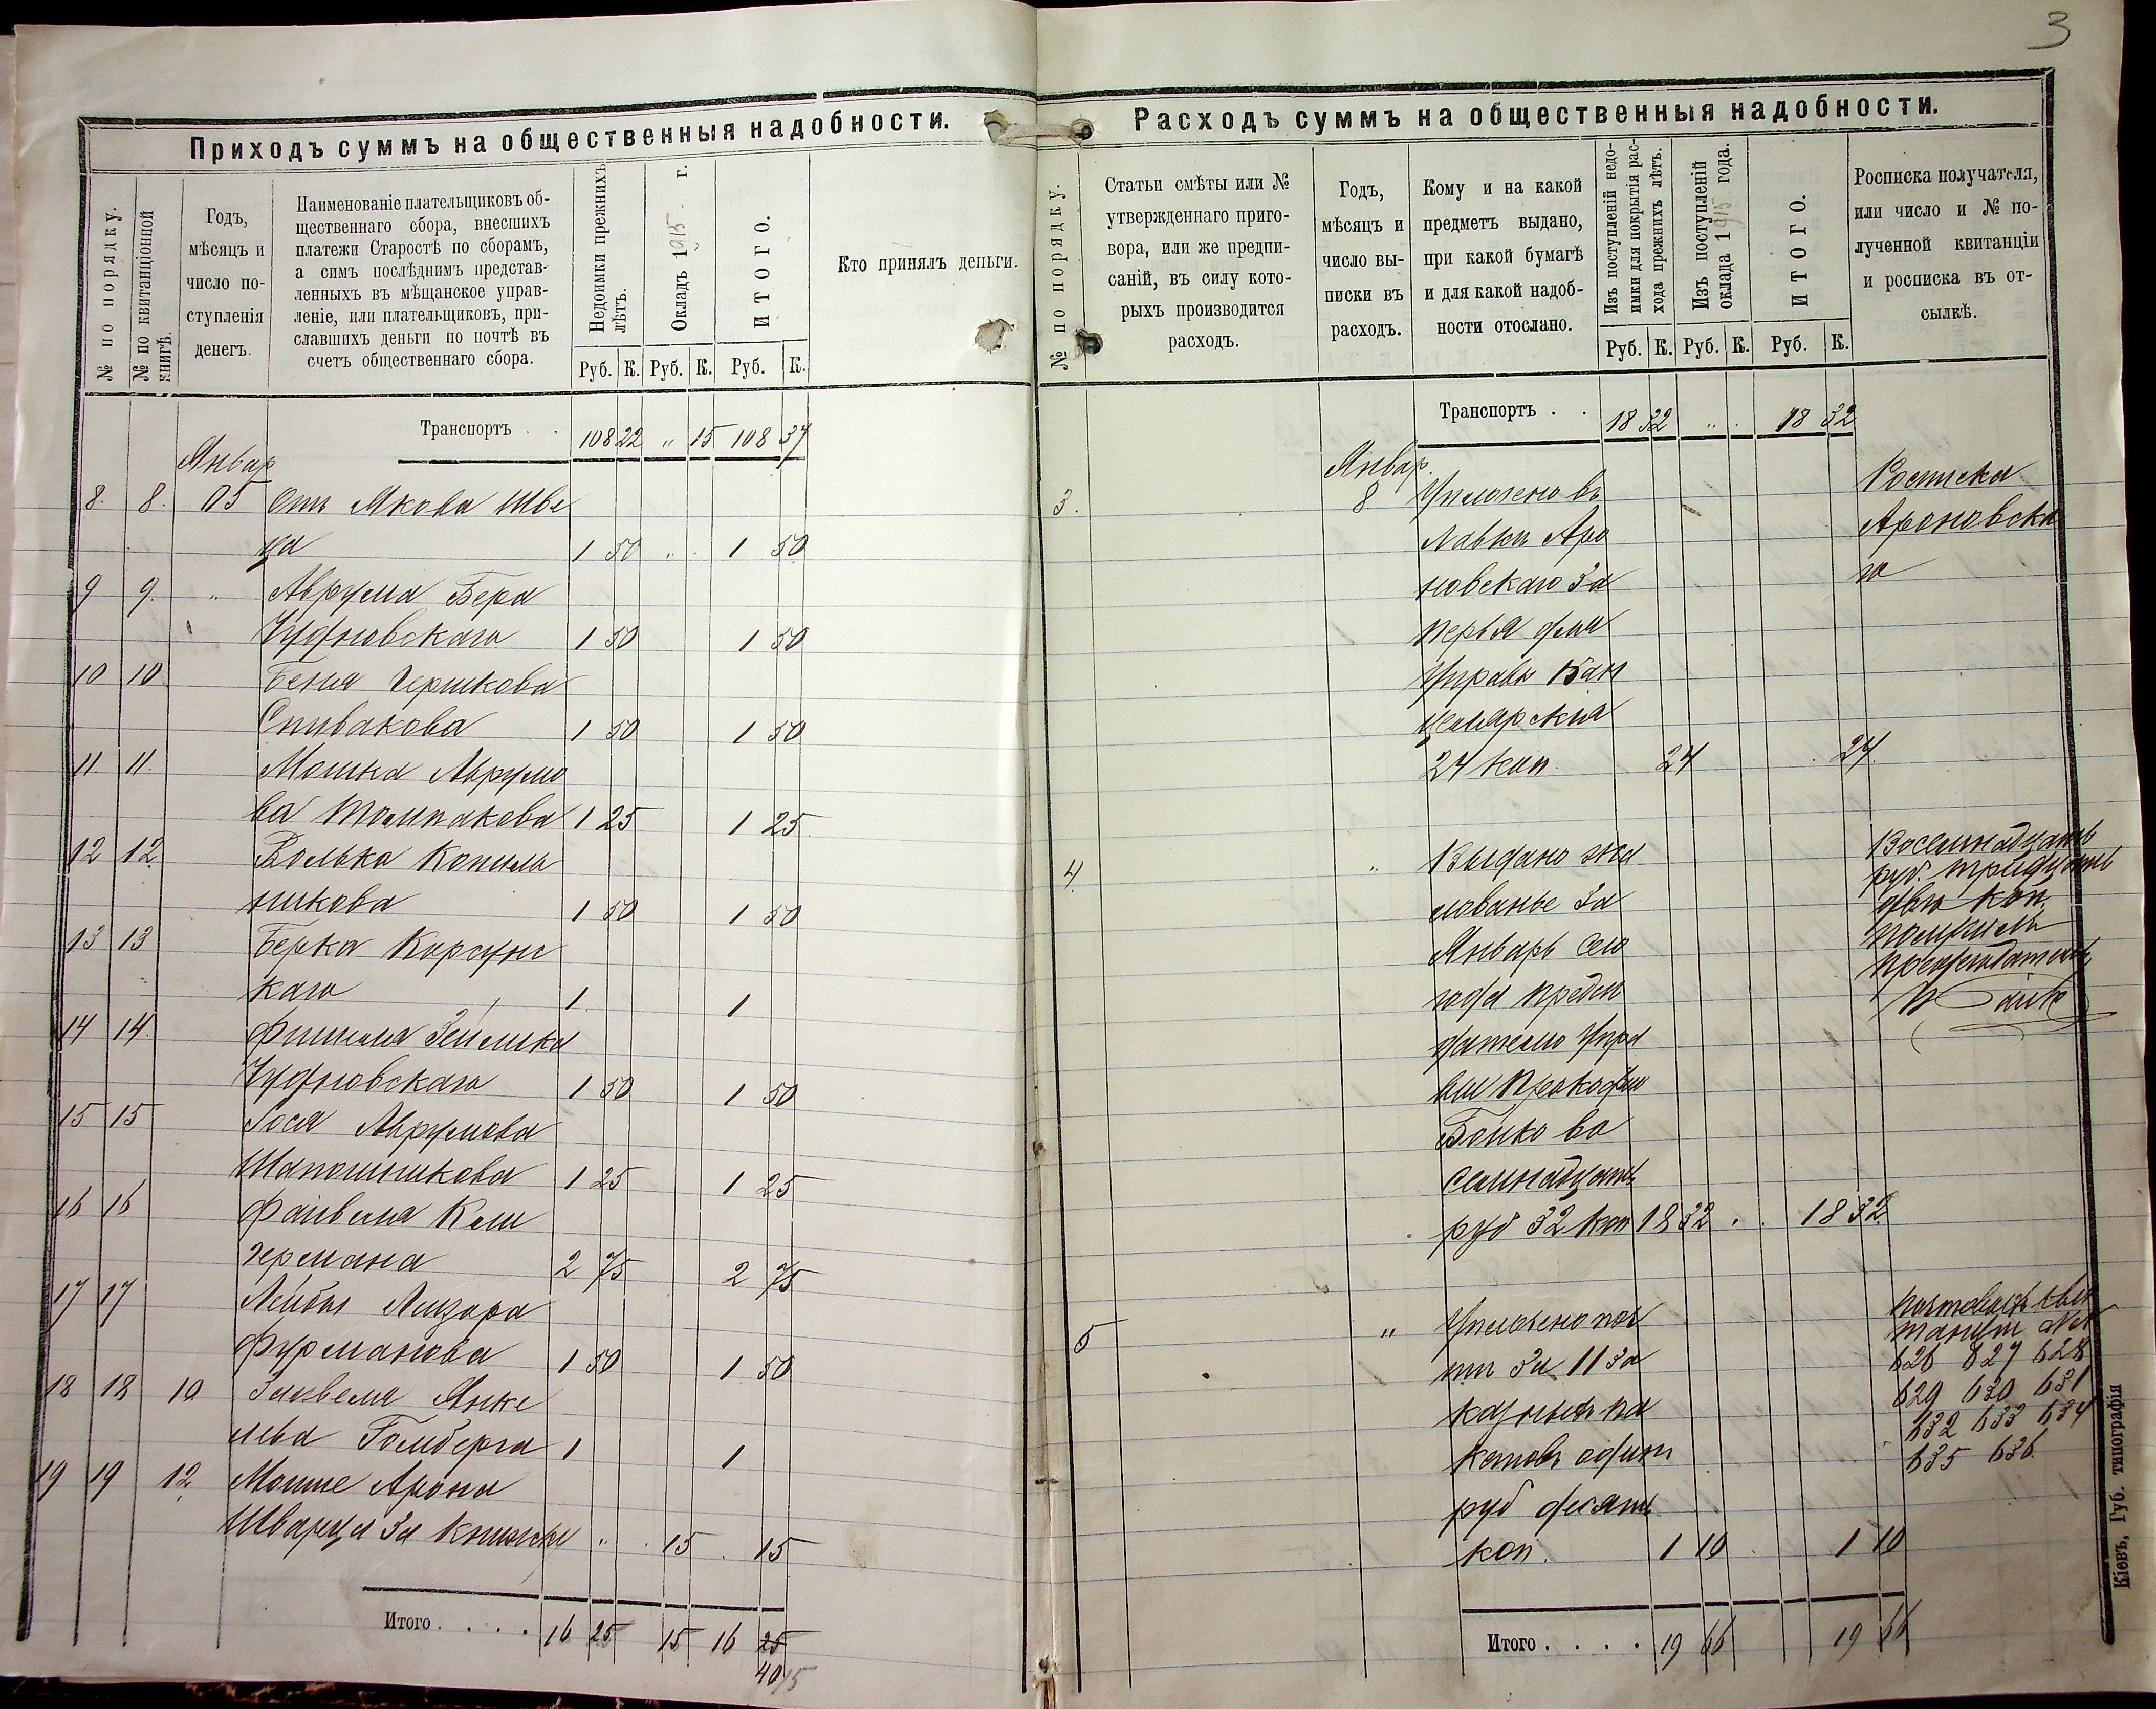 3
Приходъ суммъ на общественныя надобности.
№ по порядку.
№ по квитанціонной книгѣ.
Годъ,
мѣсяцъ и
число по-
ступленія
денегъ.
Наименованіе плательщиковъ об-
щественнаго сбора, внесшихъ
платежи Старостѣ по сборамъ,
а симъ послѣднимъ представ-
ленныхъ въ мѣщанское управ-
леніе, или плательщиковъ, при-
славшихъ деньги по почтѣ въ
счетъ общественнаго сбора.
Недоимки прежнихъ
лѣтъ.
Окладъ 1915 г.
ИТОГО.
Руб. К. Руб. К. Руб. К.
Кто принялъ деньги.
Транспортъ . . 108 22 " 15 108 37
Январ
8. 8. 05 Отъ Якова Шве
ца 1 50 " . 1 50
9 9. " Аврума Бера
Чудновскаго 1 50 1 50
10 10 Беня Гершкова
Спивакова 1 50 1 50
11. 11. Мошка Аврумо
ва Толпакова 1 25 1 25.
12 12 Волька Копиль
никова 1 50 1 50
13 13 Берка Корсунс
каго 1. 1
14 14. Фишеля Зейлика
Чудновскаго 1 50 1 50
15 15 Іося Аврумова
Шапошникова 1 25 1 25
16 16 Файвеля Кели
хермана 2 75 2 75
17 17 Лейбы Лицара
Фурманова 1 50 1 50
18 18 10 Занвеля Янке
лева Голдберга 1 1
19 19 12 Мошке Арона
Шварца За книжки " . 15 . 15
Итого . . . . 16 25 15 16 25
40
Расходъ суммъ на общественныя надобности.
№ по порядку.
Статьи смѣты или №
утвержденнаго приго-
вора, или же предпи-
саній, въ силу кото-
рыхъ производится
расходъ.
Годъ,
мѣсяцъ и
число вы-
писки въ
расходъ.
Кому и на какой
предметъ выдано,
при какой бумагѣ
и для какой надоб-
ности отослано.
Изъ поступленій недо-
имки для покрытія рас-
хода прежнихъ лѣтъ.
Изъ поступленій
оклада 1915 года.
ИТОГО.
Руб. К. Руб. К. Руб. К.
Росписка получателя,
или число и № по-
лученной квитанціи
и росписка въ от-
сылкѣ.
Транспортъ . . 18 32 " . 18 32
Январ.
3. 8 Уплочено въ Росписка
Лавки Аро Ароновска
новскаго За го
перья для
Управы Кан
целярскія
24 коп. 24 24.
4. " Выдано жа Восемнадцать
лованье За руб. тридцать
Январь сего две коп.
года предсе получилъ
дателю Упра председатель
вы Прокофию
Бойко во
семнадцать
руб 32 коп 18 32 . . 18 32
5 " Уплочено поч
ти За 11 за
казныхъ па
кетовъ одинъ
руб десять
коп. 1 10 1 10
626 627 628
629 630 631
632 633 634
635 636.
Итого . . . . 19 66 19 66
Кіевъ, Губ. типографія